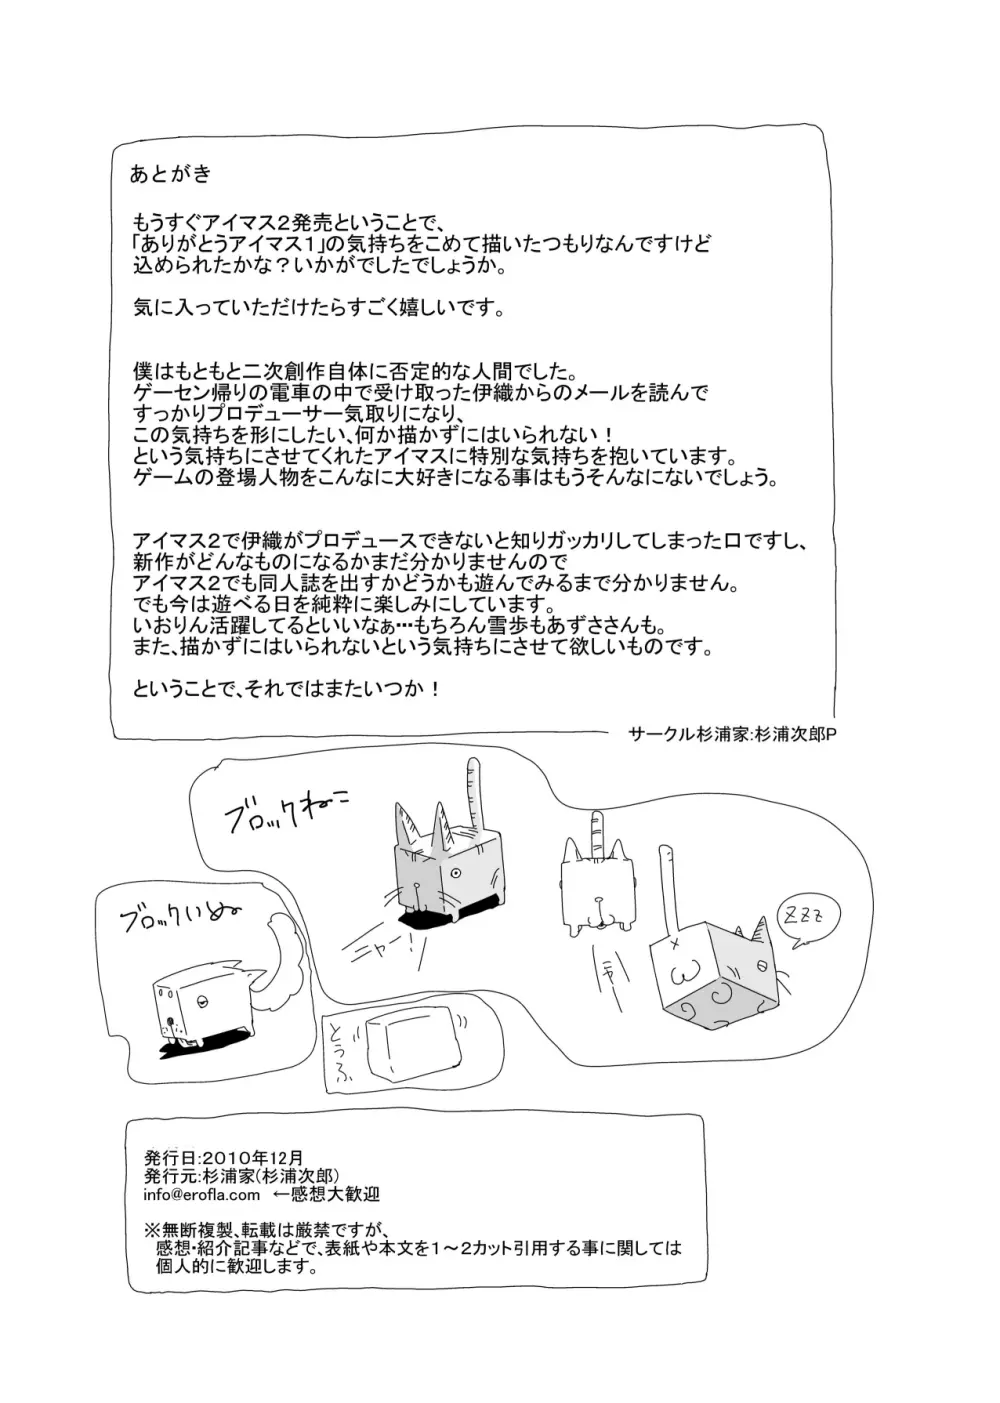 あとがき
もうすぐアイマス２発売ということで、
「ありがとうアイマス１」の気持ちをこめて描いたつもりなんですけど
込められたかな？いかがでしたでしょうか。
気に入っていただけたらすごく嬉しいです。
僕はもともと二次創作自体に否定的な人間でした。
ゲーセン帰りの電車の中で受け取った伊織からのメールを読んで
すっかりプロデューサー気取りになり、
この気持ちを形にしたい、何か描かずにはいられない！
という気持ちにさせてくれたアイマスに特別な気持ちを抱いています。
ゲームの登場人物をこんなに大好きになる事はもうそんなにないでしょう。
アイマス２で伊織がプロデュースできないと知りガッカリしてしまった口ですし、
新作がどんなものになるかまだ分かりませんので
アイマス２でも同人誌を出すかどうかも遊んでみるまで分かりません。
でも今は遊べる日を純粋に楽しみにしています。
いおりん活躍してるといいなぁ…もちろん雪歩もあずささんも。
また、描かずにはいられないという気持ちにさせて欲しいものです。
ということで、それではまたいつか！
サークル杉浦家:杉浦次郎P
ブロックねこ
ニャー！
ZZZ
ブロックいぬ
とうふ
発行日:２０１０年12月
発行元:杉浦家(杉浦次郎)
info@erofla.com ←感想大歓迎
※無断複製、転載は厳禁ですが、
感想・紹介記事などで、表紙や本文を１～２カット引用する事に関しては
個人的に歓迎します。